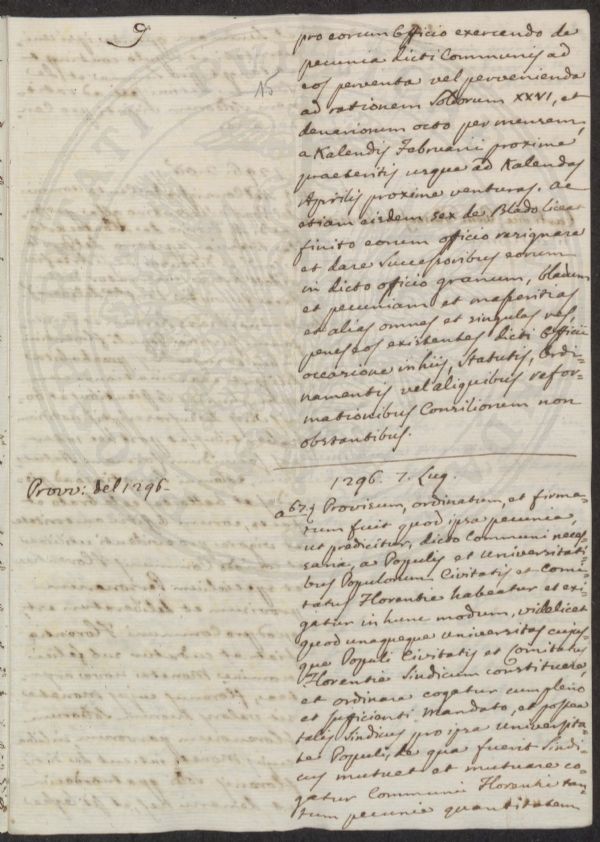 9
15
pro eorum Officio exercendo de
pecunia dicti Communis ad
eos perventa vel pervenienda
ad rationem Soldorum XXVI, et
denariorum octo per mensem,
a Kalendis Februarii proxime
praeteritis usque ad Kalendas
Aprilis proxime venturas. ac
etiam eisdem sex de Blado liceat
finito eorum officio resignare
et dare Successoribus eorum
in dicto officio granum, bladum
et pecuniam et masseritias
et alias omnes et singulas res,
penes eos existentes dicti Officii
occasione in hiis, Statutis, Ordi-
namentis vel aliquibus refor-
mationibus Consiliorum non
obstantibus.
Provv: del 1296
1296. 7. Lug.
a 67. Provisum, ordinatum, et firma-
tum fuit quod ipsa pecunia,
ut predicitur, dicto Communi neces-
saria, a Populis et Universitati-
bus Populorum Civitatis et Comi-
tatus Florentie habeatur et exi-
gatur in hunc modum, videlicet
quod unaqueque universitas cujus-
que Populi Civitatis et Comitatus
Florentie Sindicum constituere,
et ordinare cogatur cum pleno
et sufficienti mandato, et postea
talis Sindicus pro ipsa Universita-
te Populi, de qua fuerit Sindi-
cus mutuet et mutuare co-
gatur Communi Florentie tan-
tum pecunie quantitatem